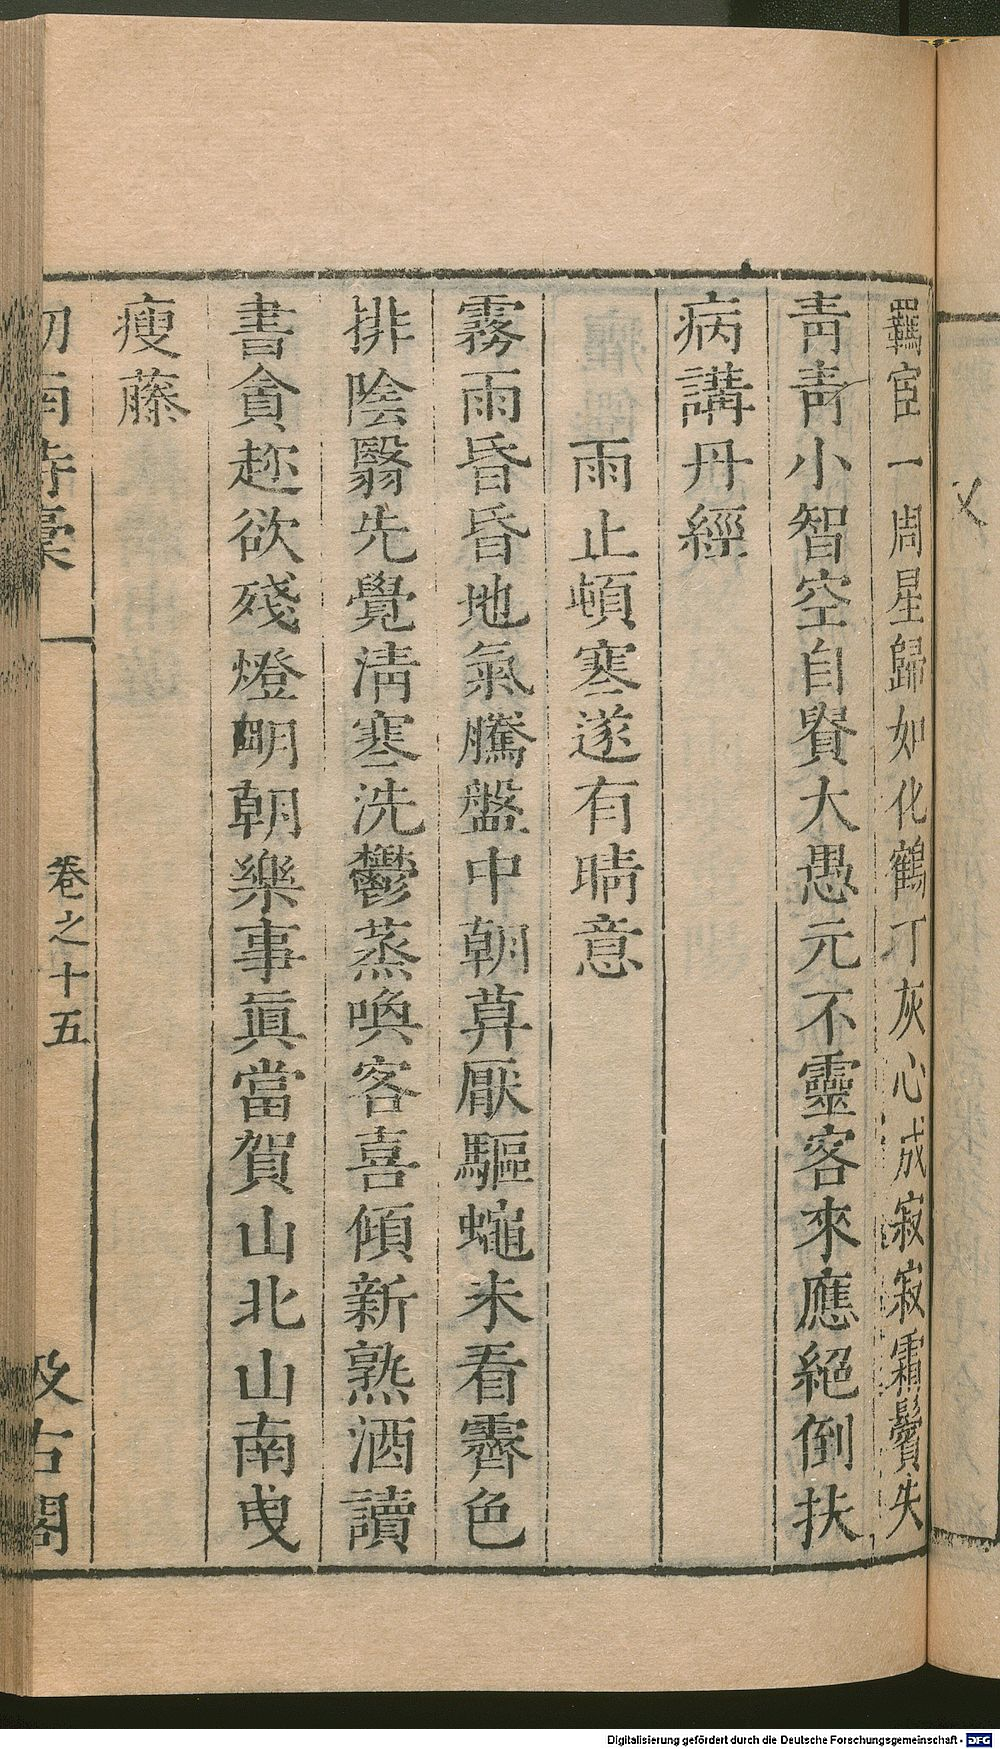 羈宦一周星歸如化鶴丁灰心成寂寂霜鬢失
靑靑小智空自賢大愚元不靈客來應絕倒扶
病講丹經
雨止頓寒遂有晴意
霧雨昏昏地氣騰盤中朝莫厭驅蠅未看霽色
排陰翳先覺淸寒洗鬱蒸喚客喜傾新熟酒讀
書貪趂欲殘燈明朝樂事眞當賀山北山南曳
瘦藤
劒南詩稾
卷之十五
汲古閣
Digitalisierung gefördert durch die Deutsche Forschungsgemeinschaft - DFG